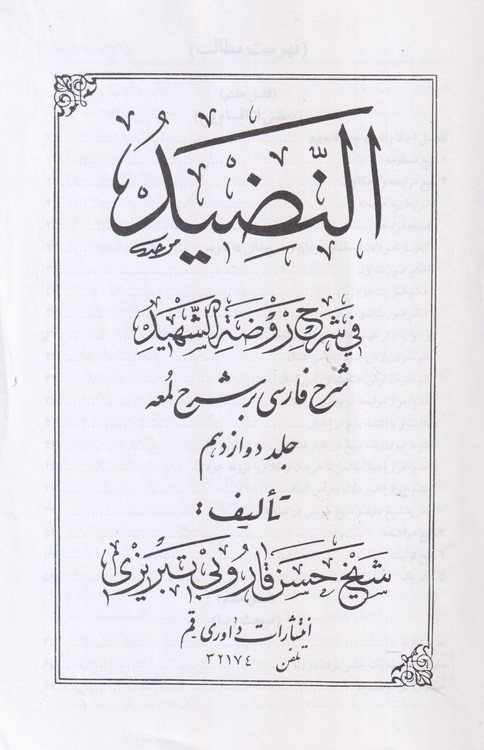 النَّضِيدُ
موحدی
فِي شَرْحِ رَوْضَةِ الشَّهِيدِ
شرح فارسی بر شرح لُمعه
جلد دوازدهم
تألیف:
شَیْخ حَسَن قَارُوبِی تَبرِیزِی
انتشارات داوری قم
تلفن ۳۲۱۷٤